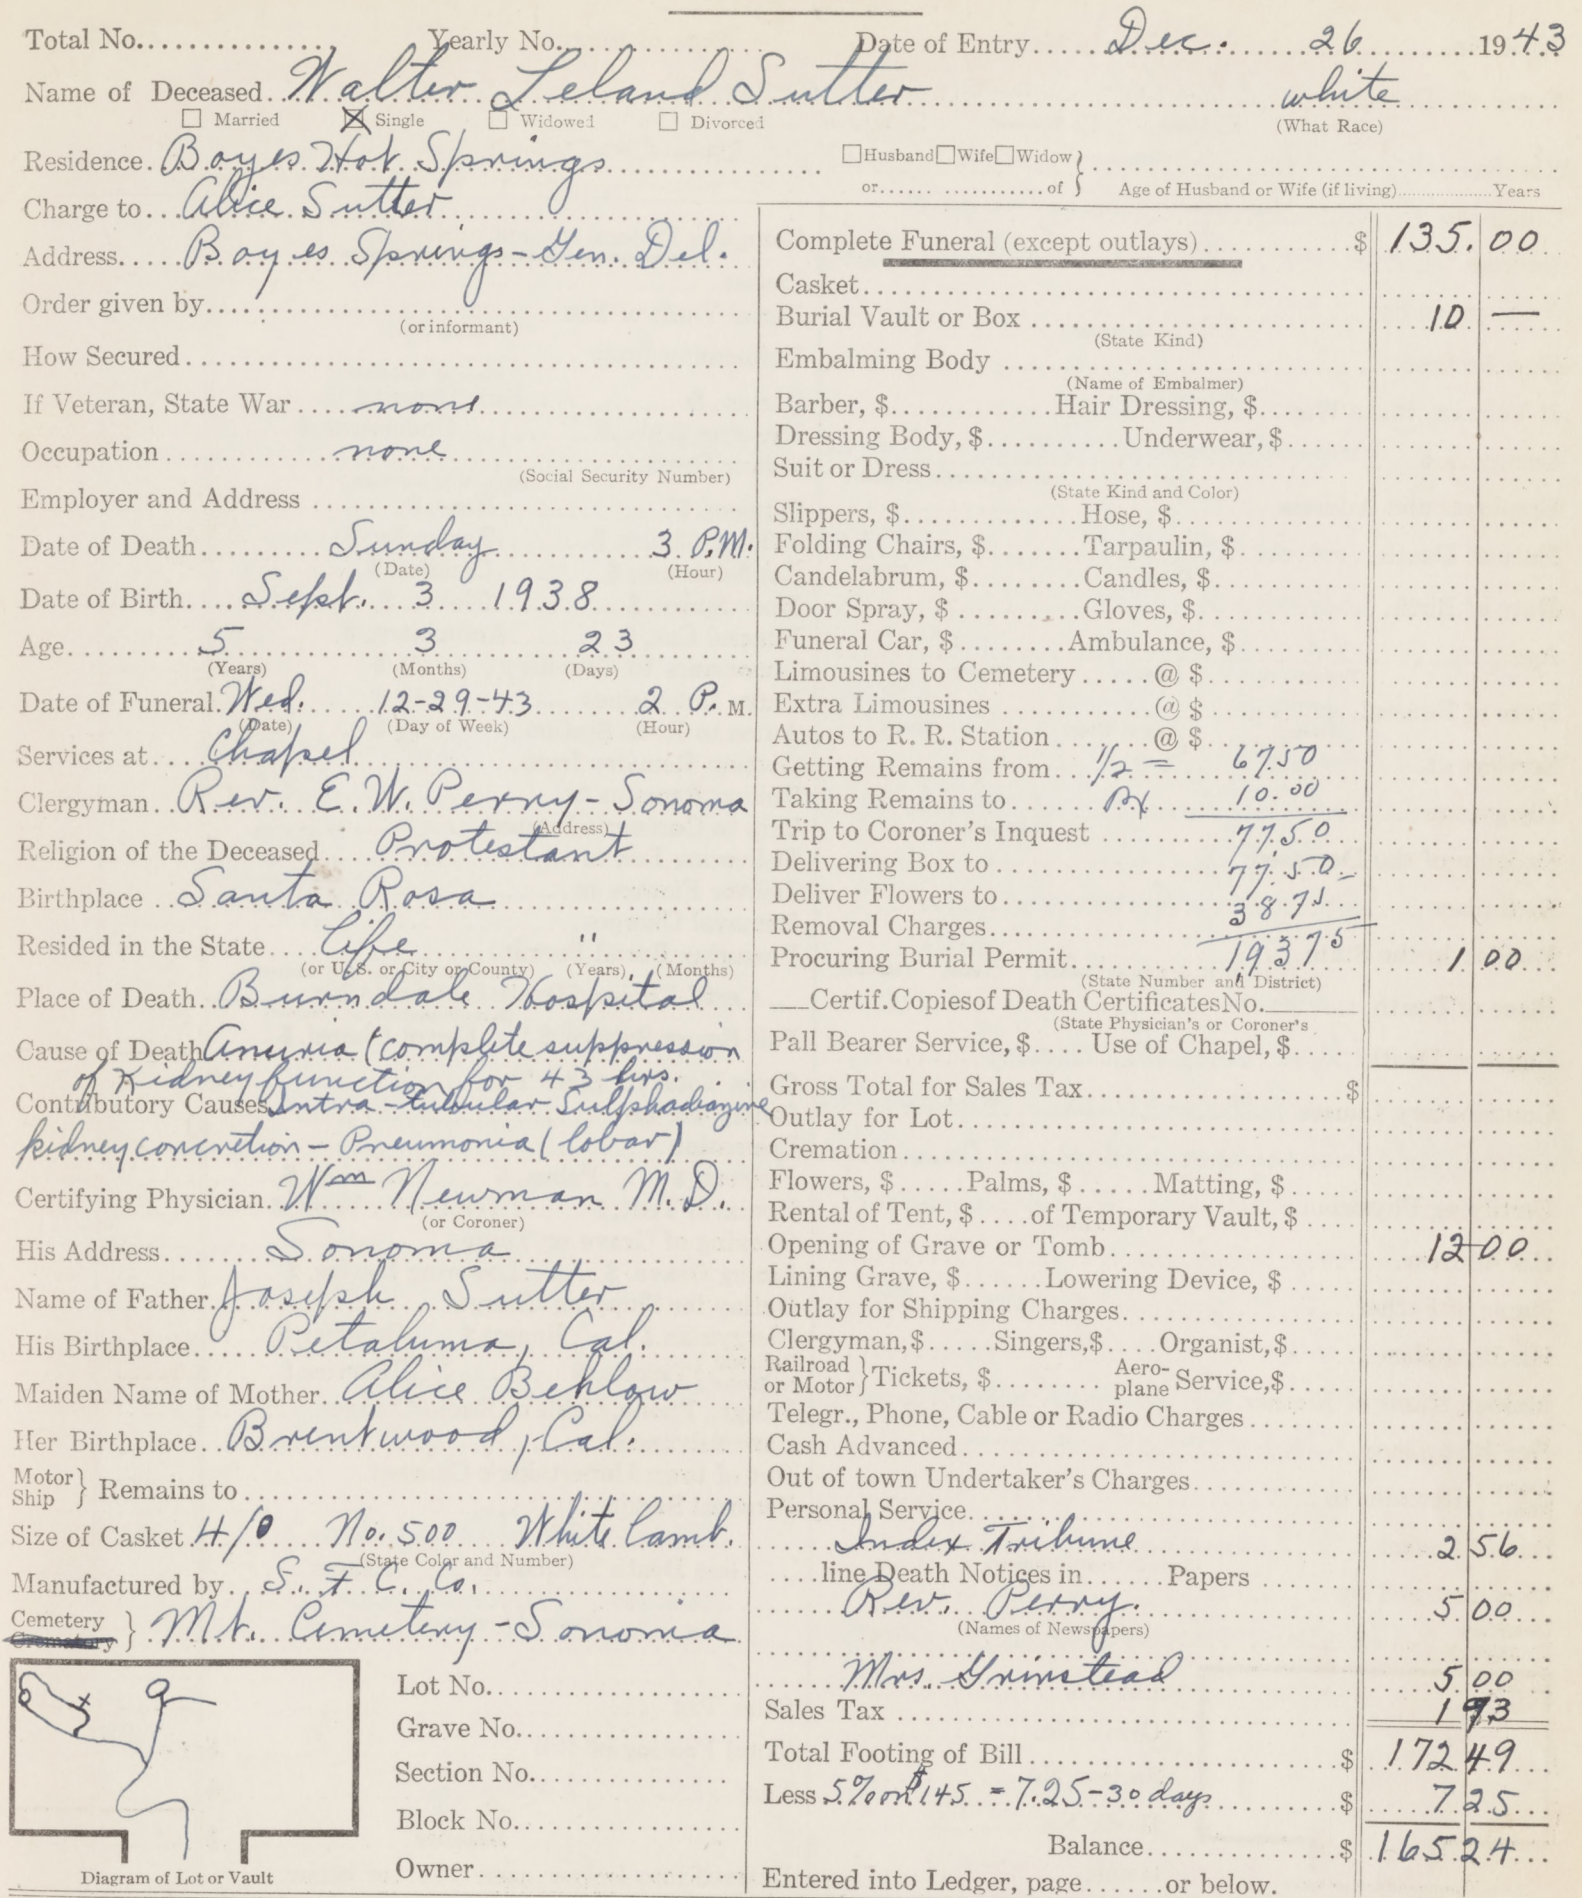 Total No. Yearly No. Date of Entry Dec. 26 1943
Name of Deceased Walter Leland Sutter white
☐ Married ☒ Single ☐ Widowed ☐ Divorced (What Race)
Residence Boyes Hot Springs ☐Husband ☐Wife ☐Widow }
or of } Age of Husband or Wife (if living) Years
Charge to Alice Sutter
Address Boyes Springs - Gen. Del.
Order given by
(or informant)
How Secured
If Veteran, State War none
Occupation none
(Social Security Number)
Employer and Address
Date of Death Sunday 3 P.M.
(Date) (Hour)
Date of Birth Sept. 3 1938
Age 5 3 23
(Years) (Months) (Days)
Date of Funeral Wed. 12-29-43 2 P. M.
(Date) (Day of Week) (Hour)
Services at Chapel
Clergyman Rev. E. W. Perry - Sonoma
(Address)
Religion of the Deceased Protestant
Birthplace Santa Rosa
Resided in the State Life "
(or U.S. or City or County) (Years) (Months)
Place of Death Burndale Hospital
Cause of Death Anuria (complete suppression
of Kidney function for 43 hrs.
Contributory Causes Intra-tubular Sulphadiazine
kidney concretion - Pneumonia (lobar)
Certifying Physician Wm Newman M.D.
(or Coroner)
His Address Sonoma
Name of Father Joseph Sutter
His Birthplace Petaluma, Cal.
Maiden Name of Mother Alice Behlow
Her Birthplace Brentwood, Cal.
Motor
Ship } Remains to
Size of Casket 4/0 No. 500 White Lamb.
(State Color and Number)
Manufactured by S. F. C. Co.
Cemetery
Crematory } Mt. Cemetery - Sonoma
Lot No.
Grave No.
Section No.
Block No.
Owner
Diagram of Lot or Vault
Complete Funeral (except outlays) $ 135.00
Casket
Burial Vault or Box 10 —
(State Kind)
Embalming Body
(Name of Embalmer)
Barber, $ Hair Dressing, $
Dressing Body, $ Underwear, $
Suit or Dress
(State Kind and Color)
Slippers, $ Hose, $
Folding Chairs, $ Tarpaulin, $
Candelabrum, $ Candles, $
Door Spray, $ Gloves, $
Funeral Car, $ Ambulance, $
Limousines to Cemetery @ $
Extra Limousines @ $
Autos to R. R. Station @ $
Getting Remains from 1/2 = 67.50
Taking Remains to 10.00
Trip to Coroner's Inquest 77.50
Delivering Box to 77.50
Deliver Flowers to 3875
Removal Charges 19375
Procuring Burial Permit 1 00
(State Number and District)
Certif. Copies of Death Certificates No.
(State Physician's or Coroner's
Pall Bearer Service, $ Use of Chapel, $
Gross Total for Sales Tax $
Outlay for Lot
Cremation
Flowers, $ Palms, $ Matting, $
Rental of Tent, $ of Temporary Vault, $
Opening of Grave or Tomb 12 00
Lining Grave, $ Lowering Device, $
Outlay for Shipping Charges
Clergyman, $ Singers, $ Organist, $
Railroad
or Motor } Tickets, $ Aero-
plane Service, $
Telegr., Phone, Cable or Radio Charges
Cash Advanced
Out of town Undertaker's Charges
Personal Service
Index Tribune 2 56
line Death Notices in Papers
Rev. Perry. 5 00
(Names of Newspapers)
Mrs. Grinstead 5 00
Sales Tax 1 93
Total Footing of Bill $ 172 49
Less 5% on $145 = 7.25 - 30 days $ 7 25
Balance $ 165 24
Entered into Ledger, page or below.